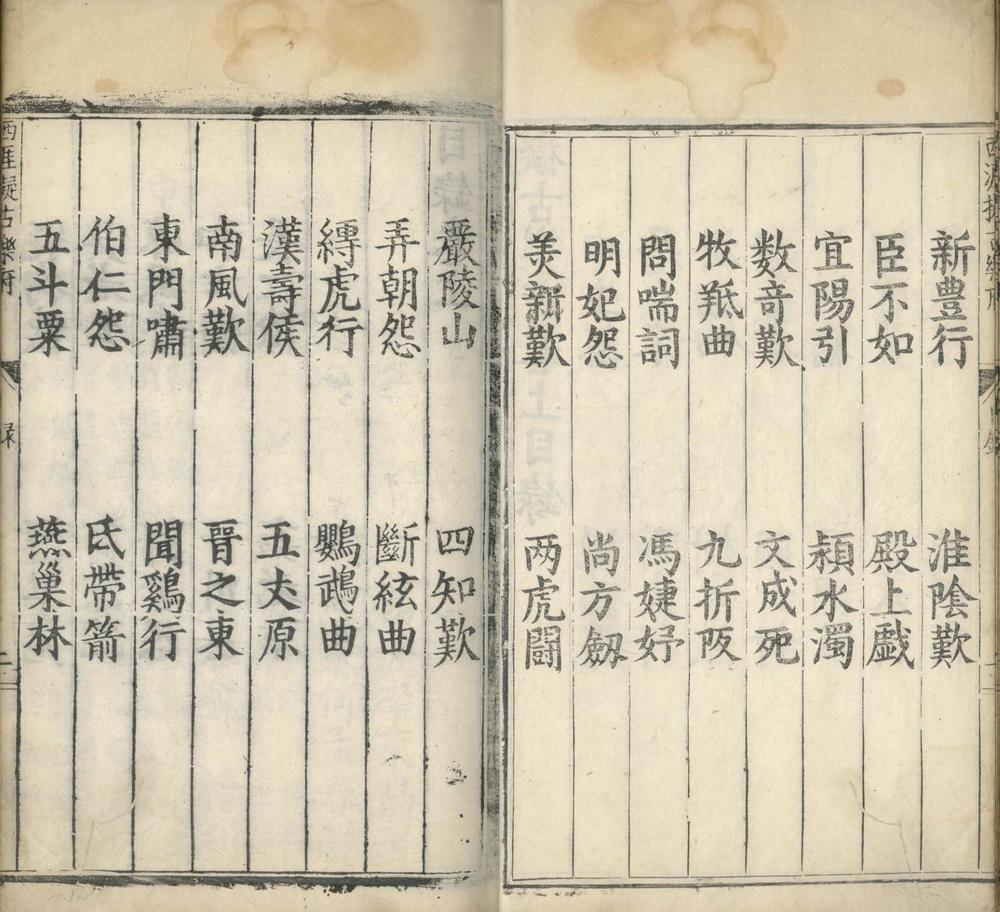 新豊行　淮陰歎
臣不如　殿上戯
宜陽引　潁水濁
数奇歎　文成死
牧羝曲　九折阪
問喘詞　馮婕妤
明妃怨　尚方劔
美新歎　两虎鬪
嚴陵山　四知歎
弄朝怨　斷絃曲
縛虎行　鸚鵡曲
漢壽侯　五丈原
南風歎　晋之東
東門嘯　聞鷄行
伯仁怨　氏帶箭
五斗粟　燕巢林
西涯擬古樂府　録　二